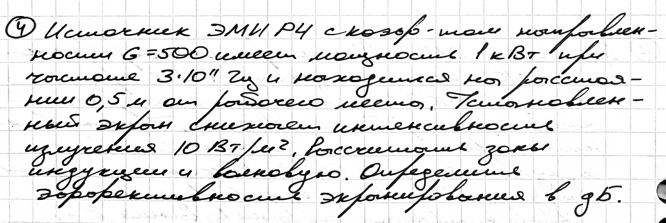 ④ Источник ЭМИ РЧ с коэф-том направлен-
ности G=500 имеет мощность 1 кВт при
частоте 3·10¹¹ Гц и находится на расстоя-
нии 0,5 м от рабочего места. Установлен-
ный экран снижает интенсивность
излучения 10 Вт/м². Рассчитать зоны
индукции и волновую. Определить
эффективность экранирования в дБ.